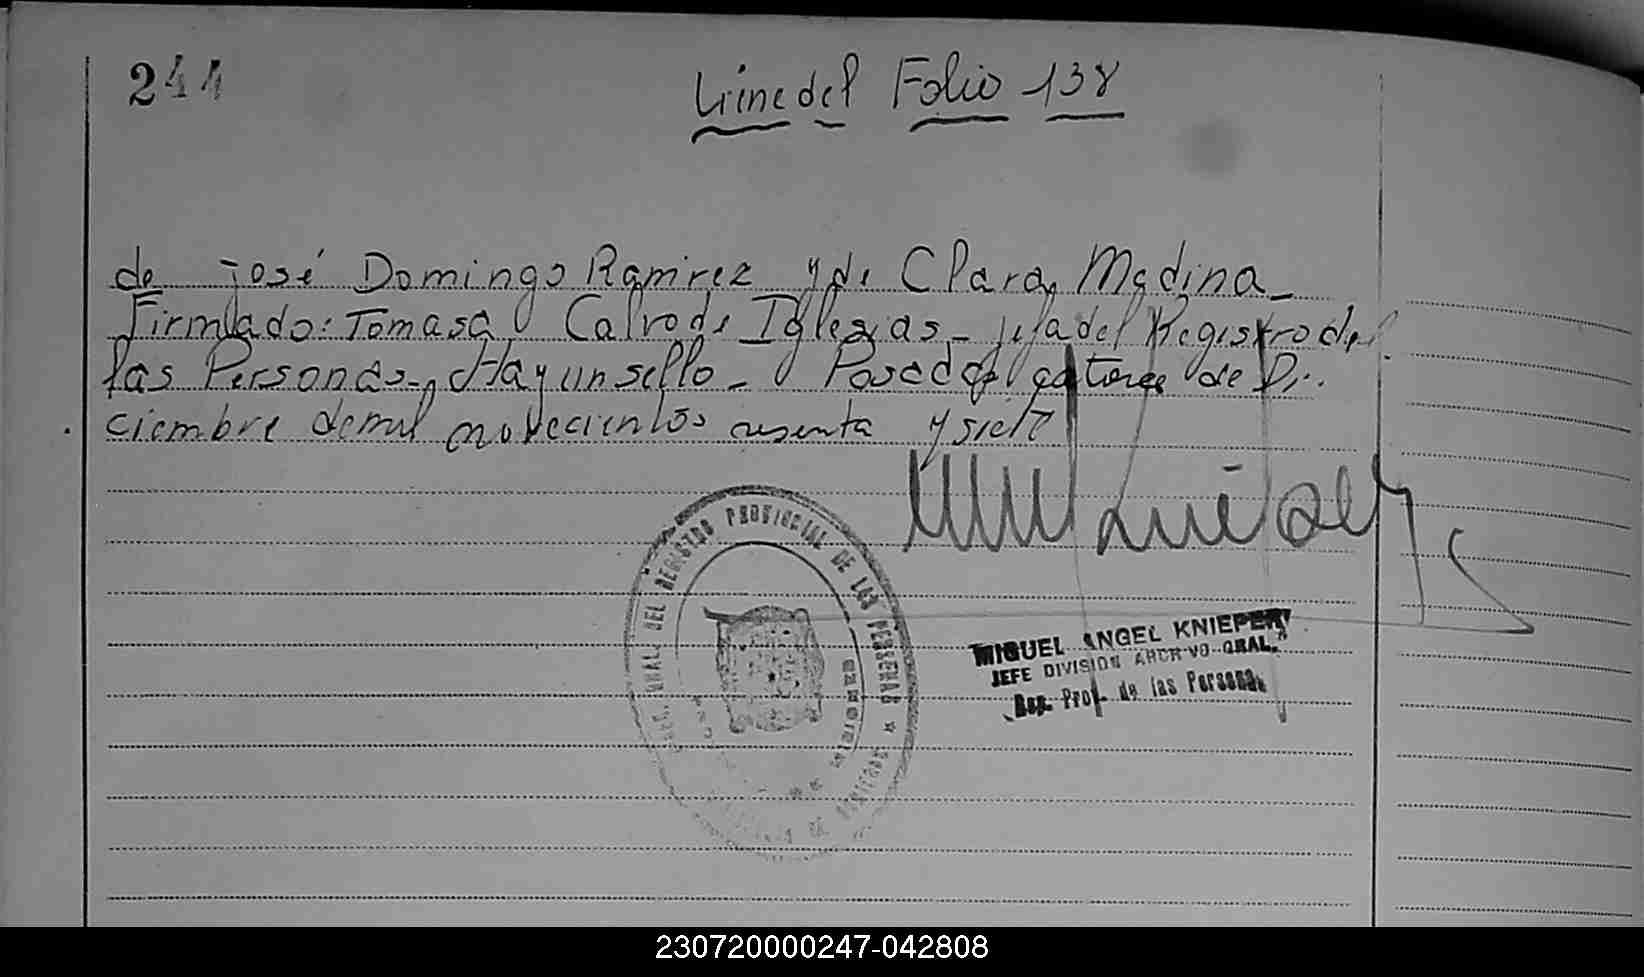 244
Viene del Folio 138
de José Domingo Ramirez y de Clara Medina_
Firmado: Tomasa Calvo de Iglesias_ jefa del Registro de
las Personas_ Hay un sello_ Posadas catorce de Di..
ciembre de mil novecientos sesenta y siete
DEL REGISTRO PROVINCIAL DE LAS PERSONAS
MIGUEL ANGEL KNIEPER
JEFE DIVISION ARCHIVO GRAL.
Reg. Prov. de las Personas
230720000247-042808